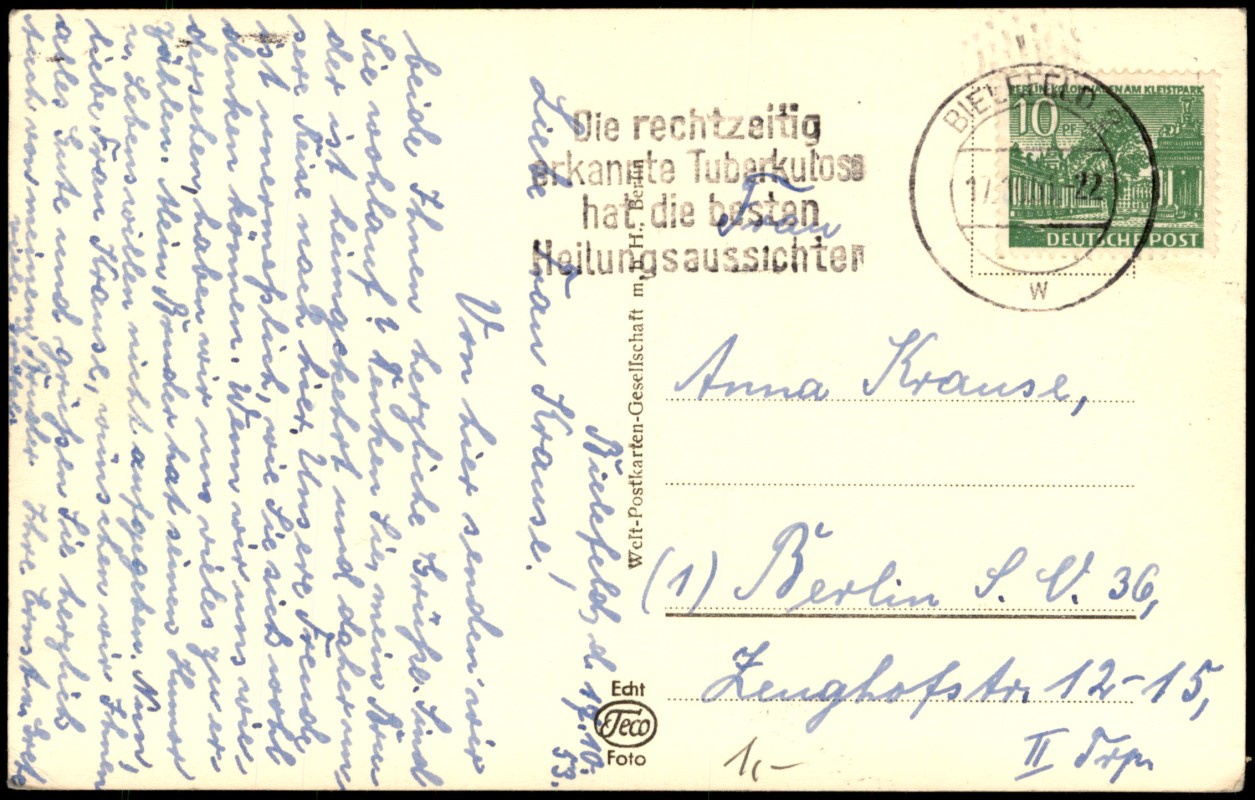 Bielefeld, d. 17.10.
53.
Liebe Frau Krause!
Von hier senden wir
beide Ihnen herzliche Grüße. Sind
Sie wohlauf? Denken Sie, mein Bru
der ist heimgekehrt und daher un
sere Reise nach hier. Unsere Freude
ist unermeßlich, wie Sie sich wohl
denken können. Wenn wir uns wie
dersehen, haben wir uns vieles zu er
zählen. Mein Bruder hat seinen Humor
u. Lebenswillen nicht aufgegeben. Nun,
liebe Frau Krause, wünschen wir Ihnen
alles Gute und grüßen Sie herzlich
auch von meinem Bruder Ihre Ernst u.
Die rechtzeitig
erkannte Tuberkulose
hat die besten
Heilungsaussichten
BIELEFELD 2
17. -22
W
BERLIN KOLONNADEN AM KLEISTPARK
10 PF
DEUTSCHE POST
Welt-Postkarten-Gesellschaft m. b. H., Berlin
Frau
Anna Krause,
(1) Berlin S. O. 36,
Zeughofstr. 12-15,
II Trp.
Echt
Teco
Foto
1,-